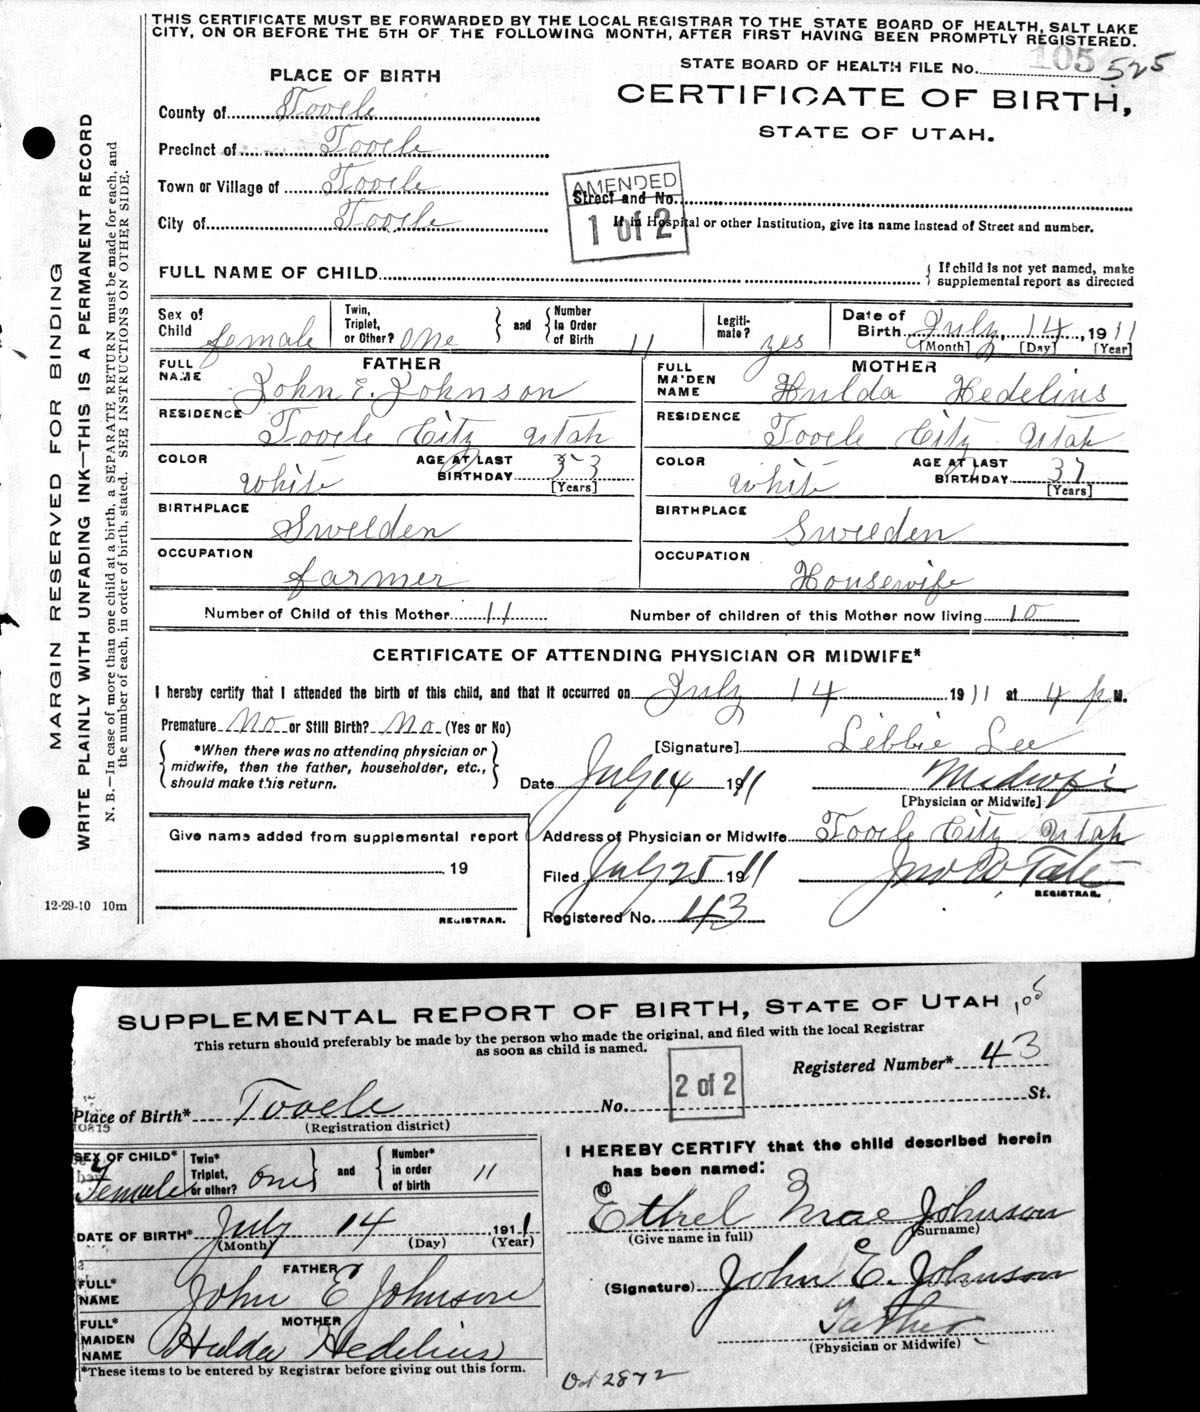 THIS CERTIFICATE MUST BE FORWARDED BY THE LOCAL REGISTRAR TO THE STATE BOARD OF HEALTH, SALT LAKE
CITY, ON OR BEFORE THE 5TH OF THE FOLLOWING MONTH, AFTER FIRST HAVING BEEN PROMPTLY REGISTERED.
STATE BOARD OF HEALTH FILE No. 105 525
PLACE OF BIRTH
CERTIFICATE OF BIRTH,
STATE OF UTAH.
County of Tooele
Precinct of Tooele
Town or Village of Tooele
City of Tooele
AMENDED
1 of 2
Street and No.
If in Hospital or other Institution, give its name Instead of Street and number.
FULL NAME OF CHILD
If child is not yet named, make
supplemental report as directed
Sex of Child female
Twin, Triplet, or Other? One
and
Number In Order of Birth 11
Legiti- mate? yes
Date of Birth July 14, 1911
[Month] [Day] [Year]
FATHER
FULL NAME John E. Johnson
RESIDENCE Tooele City Utah
COLOR White
AGE AT LAST BIRTHDAY 53
[Years]
BIRTHPLACE Sweeden
OCCUPATION farmer
MOTHER
FULL MAIDEN NAME Hulda Hedelius
RESIDENCE Tooele City Utah
COLOR White
AGE AT LAST BIRTHDAY 37
[Years]
BIRTHPLACE Sweeden
OCCUPATION Housewife
Number of Child of this Mother 11
Number of children of this Mother now living 10
CERTIFICATE OF ATTENDING PHYSICIAN OR MIDWIFE*
I hereby certify that I attended the birth of this child, and that it occurred on July 14 1911 at 4 p M.
Premature No or Still Birth? No (Yes or No)
*When there was no attending physician or
midwife, then the father, householder, etc.,
should make this return.
[Signature] Libbie Lee
Date July 14 1911
Midwife
[Physician or Midwife]
Give name added from supplemental report
19
REGISTRAR.
Address of Physician or Midwife Tooele City Utah
Filed July 25 1911
Jno B Tate
REGISTRAR.
Registered No. 43
12-29-10 10m
MARGIN RESERVED FOR BINDING
WRITE PLAINLY WITH UNFADING INK—THIS IS A PERMANENT RECORD
N. B.—In case of more than one child at a birth, a SEPARATE RETURN must be made for each, and
the number of each, in order of birth, stated. SEE INSTRUCTIONS ON OTHER SIDE.
SUPPLEMENTAL REPORT OF BIRTH, STATE OF UTAH 105
This return should preferably be made by the person who made the original, and filed with the local Registrar
as soon as child is named.
2 of 2
Registered Number* 43
Place of Birth* Tooele
No. St.
(Registration district)
SEX OF CHILD* Female
Twin* Triplet, or other? One
and
Number* in order of birth 11
DATE OF BIRTH* July 14 1911
(Month) (Day) (Year)
FATHER
FULL* NAME John E Johnson
MOTHER
FULL* MAIDEN NAME Hulda Hedelius
*These items to be entered by Registrar before giving out this form.
I HEREBY CERTIFY that the child described herein
has been named:
Ethel Mae Johnson
(Give name in full) (Surname)
(Signature) John E. Johnson
Father
(Physician or Midwife)